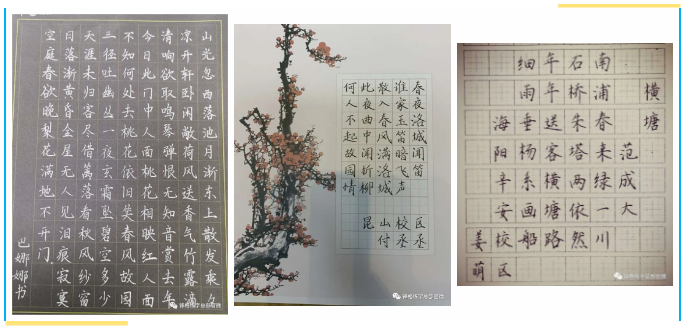 山光忽西落池月渐东上散发乘夕
凉开轩卧闲敞荷风送香气竹露滴
清响欲取鸣琴弹恨无知音赏去年
今日此门中人面桃花相映红人面
不知何处去桃花依旧笑春风故园
三径吐幽丛一夜玄霜坠碧空多少
天涯未归客尽借篱落看秋风纱窗
日落渐黄昏金屋无人见泪痕寂寞
空庭春欲晚梨花满地不开门
巴娜娜书
春夜洛城闻笛
谁家玉笛暗飞声
散入春风满洛城
此夜曲中闻折柳
何人不起故园情
昆山校区
付丞丞
横塘
范成大
南浦春来绿一川
石桥朱塔两依然
年年送客横塘路
细雨垂杨系画船
海阳辛安校区
姜萌